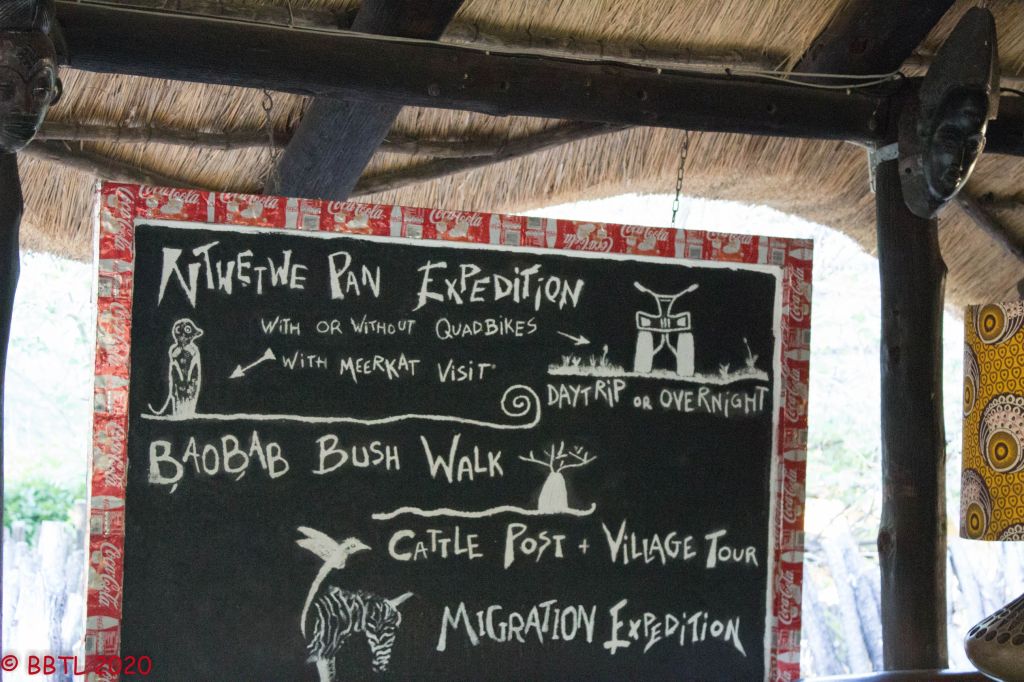 Coca-Cola Coca-Cola Coca-Cola Coca-Cola
NTWETWE PAN EXPEDITION
WITH OR WITHOUT QUADBIKES
WITH MEERKAT VISIT
DAYTRIP OR OVERNIGHT
BAOBAB BUSH WALK
CATTLE POST + VILLAGE TOUR
MIGRATION EXPEDITION
© BBTL 2020